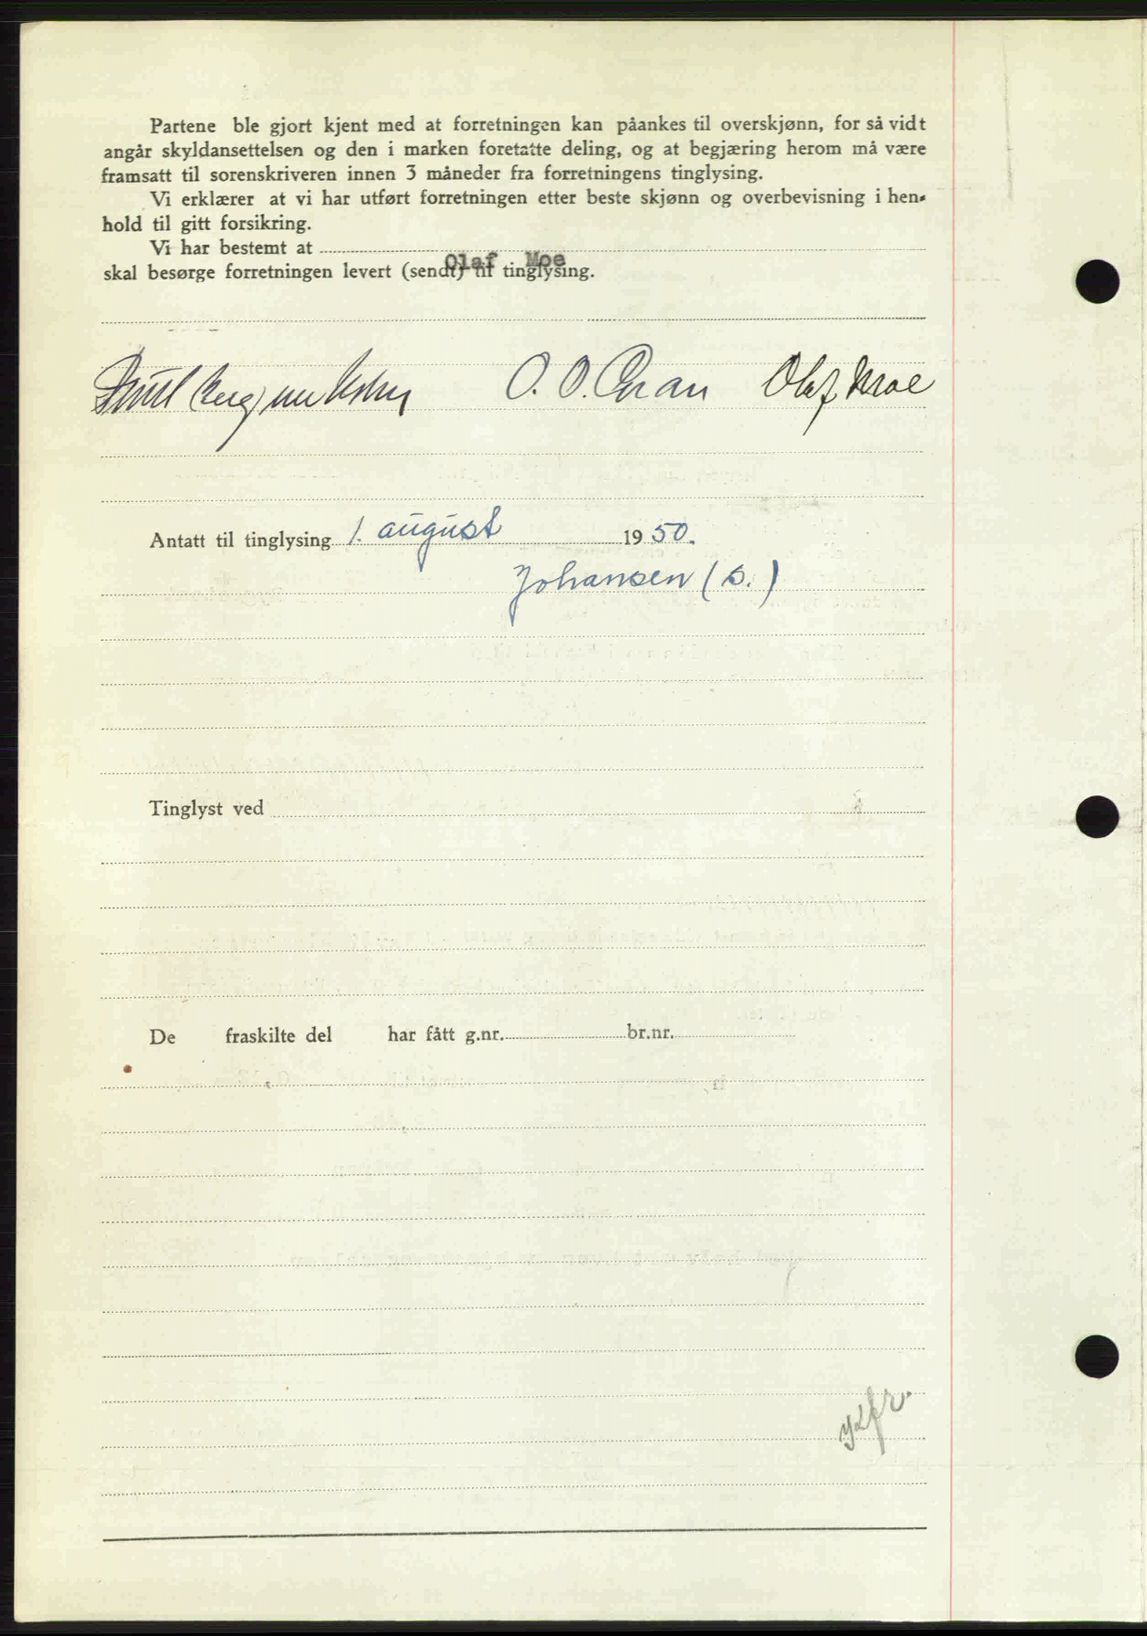 Partene ble gjort kjent med at forretningen kan påankes til overskjønn, for så vidt
angår skyldansettelsen og den i marken foretatte deling, og at begjæring herom må være
framsatt til sorenskriveren innen 3 måneder fra forretningens tinglysing.
Vi erklærer at vi har utført forretningen etter beste skjønn og overbevisning i hen-
hold til gitt forsikring.
Vi har bestemt at
Olaf Moe
skal besørge forretningen levert (sendt) til tinglysing.
O. O. Olaf Moe
Antatt til tinglysing 1. august 1950.
Johansen (s.)
Tinglyst ved
De fraskilte del har fått g.nr. br.nr.